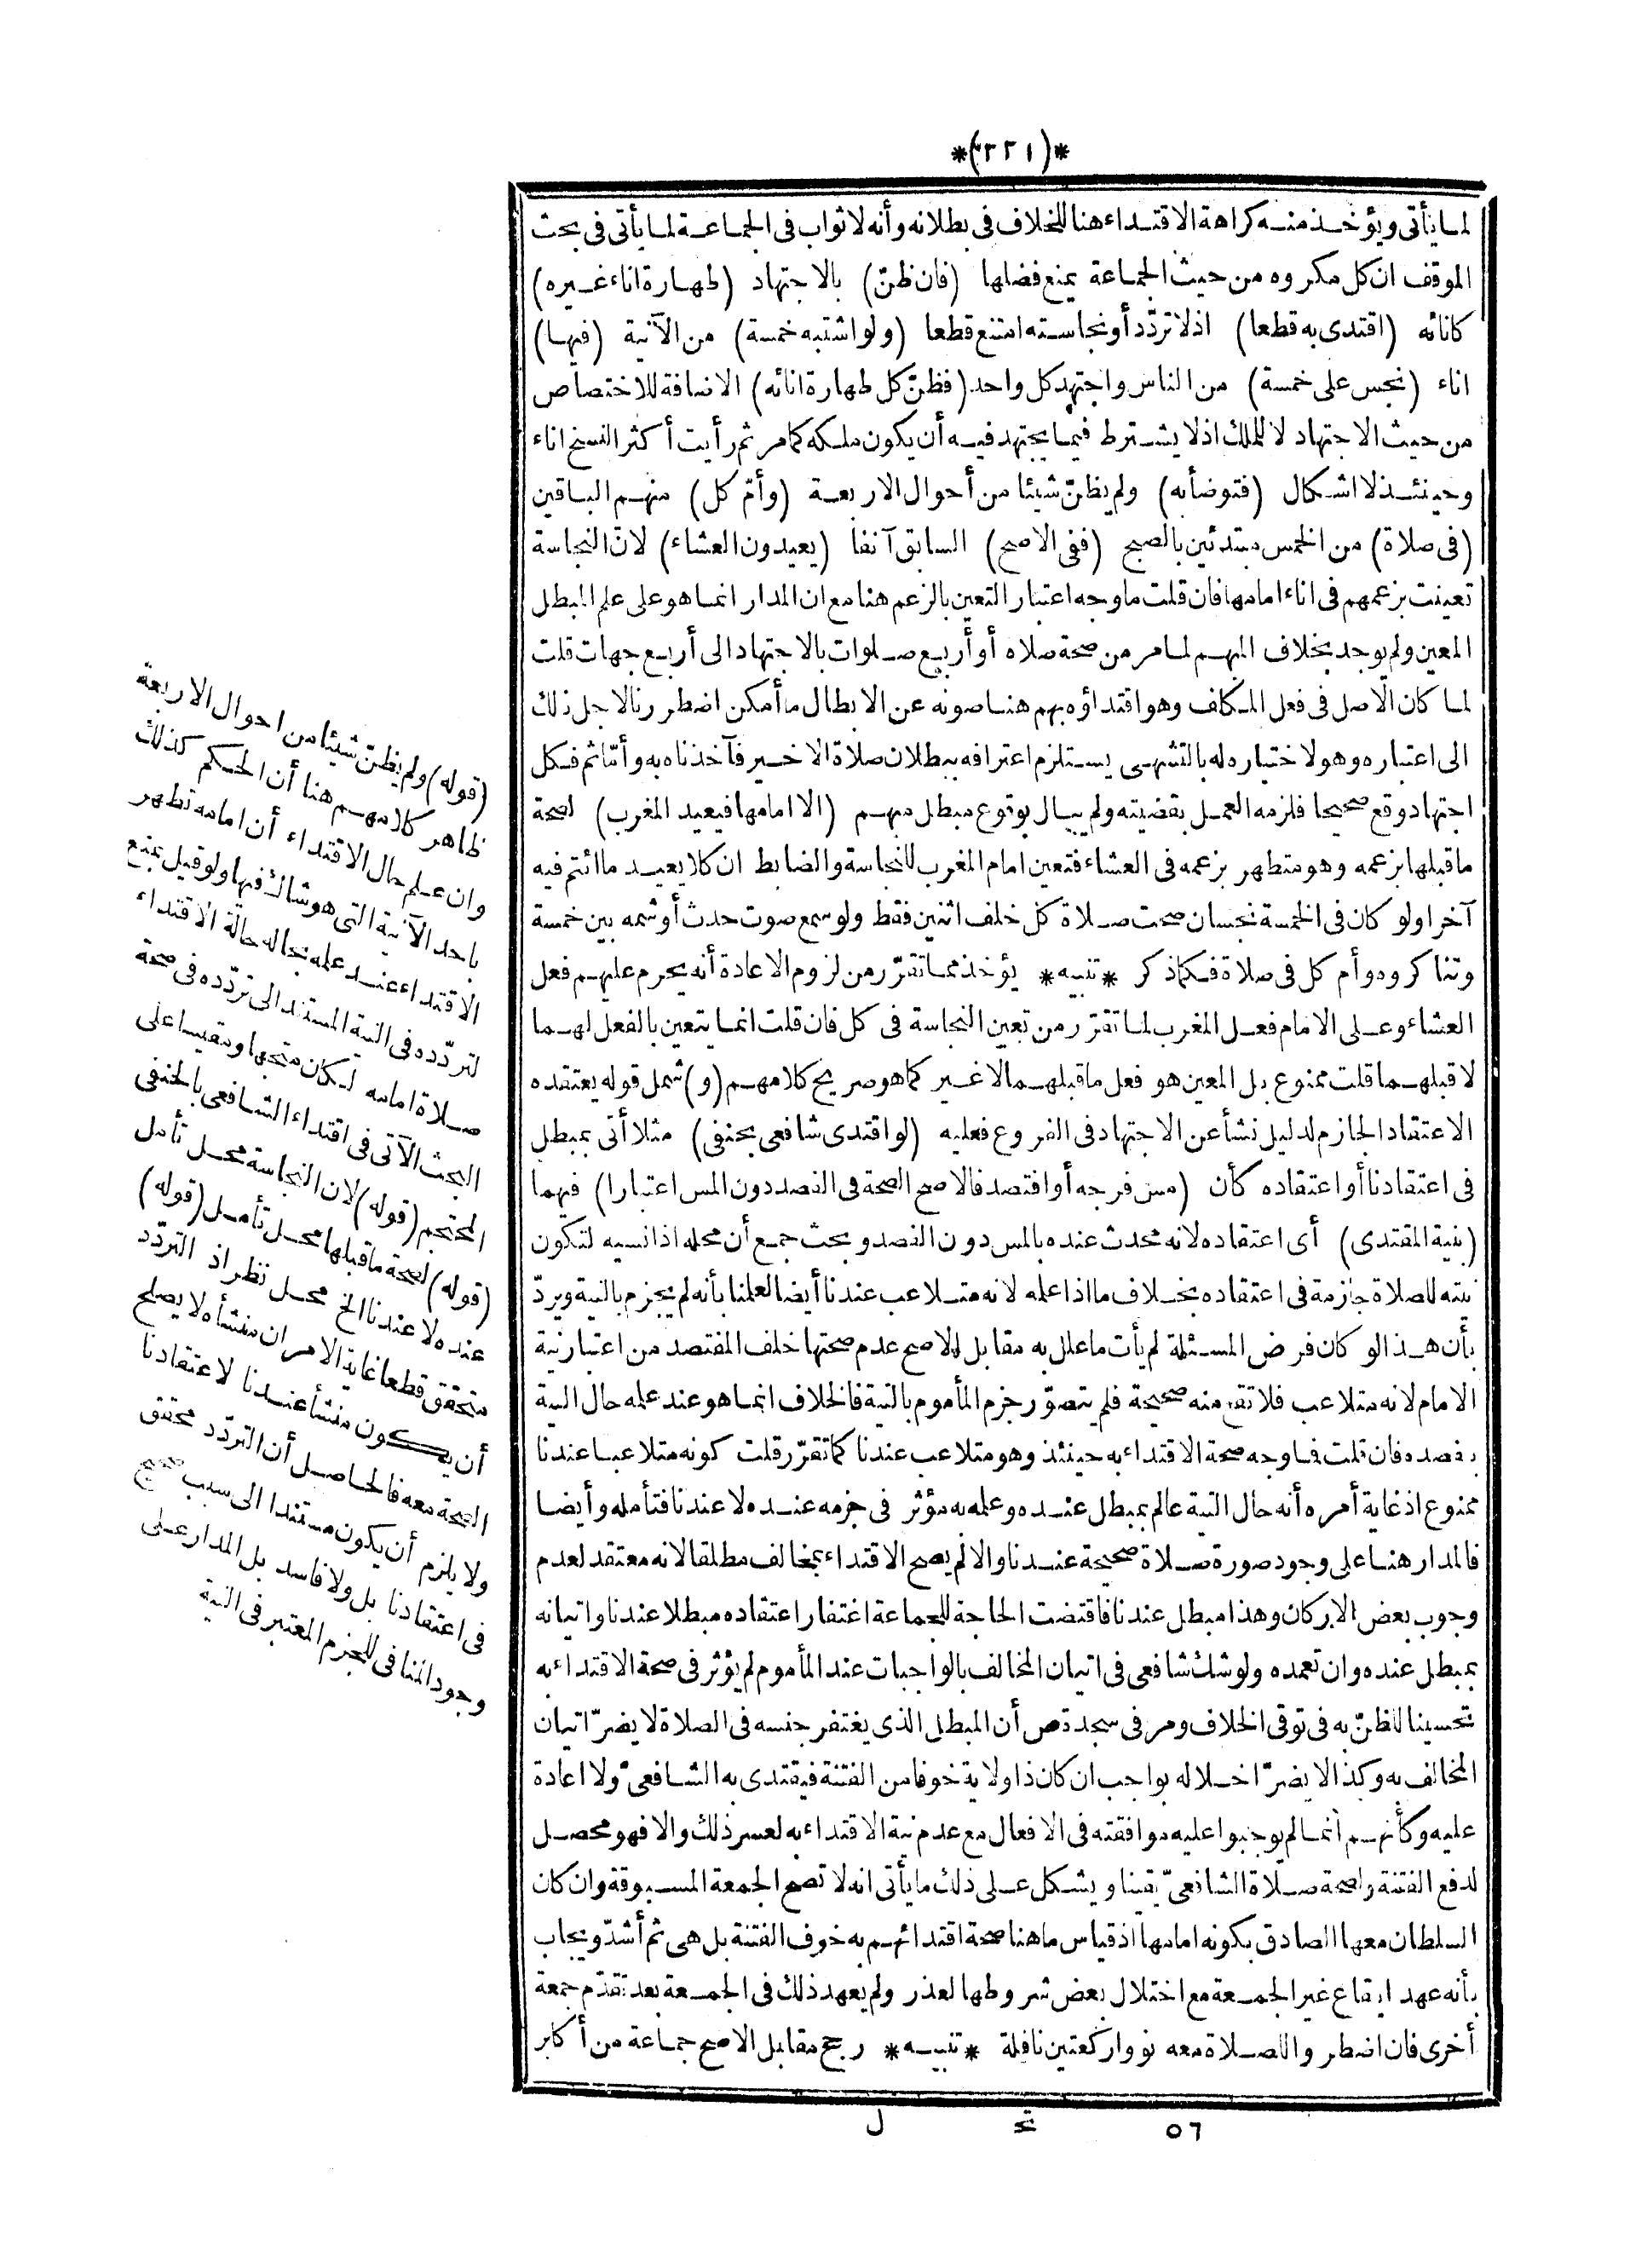 *(٢٢١)*
لما يأتى ويؤخذ منه كراهة الاقتداء هنا للخلاف فى بطلانه وأنه لا ثواب فى الجماعة لما يأتى فى بحث
الموقف ان كل مكروه من حيث الجماعة يمنع فضلها (فان ظنّ) بالاجتهاد (طهارة اناء غيره)
كانائه (اقتدى به قطعا) اذ لا تردّد أو نجاسته امتنع قطعا (ولو اشتبه خمسة) من الآنية (فيها)
اناء (نجس على خمسة) من الناس واجتهد كل واحد (فظنّ كل طهارة انائه) الاضافة للاختصاص
من حيث الاجتهاد لا للملك اذ لا يشترط فيما يجتهد فيه أن يكون ملكه كما مر ثم رأيت أكثر النسخ اناء
وحينئذ لا اشكال (فتوضأ به) ولم يظنّ شيئا من أحوال الاربعة (وأمّ كل) منهم الباقين
(فى صلاة) من الخمس مبتدئين بالصبح (ففى الاصح) السابق آنفا (يعيدون العشاء) لانّ النجاسة
تعينت بزعمهم فى اناء امامها فان قلت ما وجه اعتبار التعين بالزعم هنا مع ان المدار انما هو على علم المبطل
المعين ولم يوجد بخلاف المبهم لما مر من صحة صلاه أو أربع صلوات بالاجتهاد الى أربع جهات قلت
لما كان الاصل فى فعل المكلف وهو اقتداؤه بهم هنا صونه عن الابطال ما أمكن اضطررنا لاجل ذلك
الى اعتباره وهو لاختياره له بالتشهى يستلزم اعترافه ببطلان صلاة الاخير فآخذناه به وأمّا ثم فكل
اجتهاد وقع صحيحا فلزمه العمل بقضيته ولم يبال بوقوع مبطل مبهم (الا امامها فيعيد المغرب) لصحة
ما قبلها بزعمه وهو متطهر بزعمه فى العشاء فتعين امام المغرب للنجاسة والضابط ان كلا يعيد ما ائتم فيه
آخرا ولو كان فى الخمسة نجسان صحت صلاة كل خلف اثنين فقط ولو سمع صوت حدث أو شمه بين خمسة
وتناكروه وأم كل فى صلاة فكما ذكر *تنبيه* يؤخذ مما تقرّر من لزوم الاعادة أنه يحرم عليهم فعل
العشاء وعلى الامام فعل المغرب لما تقرّر من تعين النجاسة فى كل فان قلت انما يتعين بالفعل لهما
لا قبلهما قلت ممنوع بل المعين هو فعل ما قبلهما لا غير كما هو صريح كلامهم (و) شمل قوله يعتقده
الاعتقاد الجازم لدليل نشأ عن الاجتهاد فى الفروع فعليه (لو اقتدى شافعى بحنفى) مثلا أتى بمبطل
فى اعتقادنا أو اعتقاده كأن (مس فرجه أو افتصد فالاصح الصحة فى الفصد دون المس اعتبارا) فيهما
(بنية المقتدى) أى اعتقاده لانه محدث عنده بالمس دون الفصد وبحث جمع أن محله اذا نسيه لتكون
نيته للصلاة جازمة فى اعتقاده بخلاف ما اذا علمه لانه متلاعب عندنا أيضا لعلمنا بأنه لم يجزم بالنية ويردّ
بأن هذا لو كان فرض المسئلة لم يأت ما علل به مقابل الاصح عدم صحتها خلف المفتصد من اعتبار نية
الامام لانه متلاعب فلا تقع منه صحيحة فلم يتصوّر جزم المأموم بالنية فالخلاف انما هو عند علمه حال النية
بفصده فان قلت فما وجه صحة الاقتداء به حينئذ وهو متلاعب عندنا كما تقرّر قلت كونه متلاعبا عندنا
ممنوع اذ غاية أمره أنه حال النية عالم بمبطل عنده وعلمه به مؤثر فى جزمه عنده لا عندنا فتأمله وأيضا
فالمدار هنا على وجود صورة صلاة صحيحة عندنا والا لم يصح الاقتداء بمخالف مطلقا لانه معتقد لعدم
وجوب بعض الاركان وهذا مبطل عندنا فاقتضت الحاجة للجماعة اغتفار اعتقاده مبطلا عندنا واتيانه
بمبطل عنده وان تعمده ولو شك شافعى فى اتيان المخالف بالواجبات عند المأموم لم يؤثر فى صحة الاقتداء به
تحسينا للظنّ به فى توقى الخلاف ومر فى سجدة ص أن المبطل الذى يغتفر جنسه فى الصلاة لا يضرّ اتيان
المخالف به وكذا لا يضرّ اخلاله بواجب ان كان ذا ولاية خوفا من الفتنة فيقتدى به الشافعىّ ولا اعادة
عليه وكأنهم انما لم يوجبوا عليه موافقته فى الافعال مع عدم نية الاقتداء به لعسر ذلك والا فهو محصل
لدفع الفتنة ولصحة صلاة الشافعىّ يقينا ويشكل على ذلك ما يأتى انه لا تصح الجمعة المسبوقة وان كان
السلطان معها الصادق بكونه امامها اذ قياس ما هنا صحة اقتدائهم به خوف الفتنة بل هى ثم أشدّ ويجاب
بأنه عهد ايقاع غير الجمعة مع اختلال بعض شروطها لعذر ولم يعهد ذلك فى الجمعة بعد تقدّم جمعة
أخرى فان اضطروا للصلاة معه نووا ركعتين نافلة *تنبيه* رجح مقابل الاصح جماعة من أكابر
٥٦ تح ل
(قوله) ولم يظنّ شيئا من احوال الاربعة
ظاهر كلامهم هنا أن الحكم كذلك
وان علم حال الاقتداء أن امامه تطهر
باحد الآنية التى هو شاك فيها ولو قيل بمنع
الاقتداء عند علمه بحاله حالة الاقتداء
لتردّده فى النية المستند الى تردّده فى صحة
صلاة امامه لكان متجها ومقيسا على
البحث الآتى فى اقتداء الشافعى بالحنفى
المحتجم (قوله) لان النجاسة محل تأمل
(قوله) لصحة ما قبلها محل تأمل (قوله)
عنده لا عندنا الخ محل نظر اذ التردّد
متحقق قطعا غاية الامر ان منشأه لا يصلح
أن يكون منشأ عندنا لاعتقادنا
الصحة معه فالحاصل أن التردّد محقق
ولا يلزم أن يكون مستندا الى سبب صحيح
فى اعتقادنا بل ولا فاسد بل المدار على
وجود المنافى للجزم المعتبر فى النية